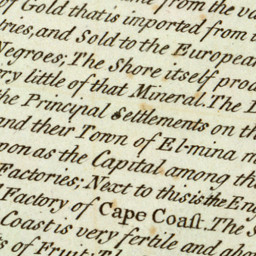 from the va
of Gold that is imported from i
tries, and Sold to the European
Negroes; The Shore itself prod
ry little of that Mineral. The D
the Principal Settlements on th
and their Town of El-mina m
pon as the Capital among tha
Factories; Next to this is the En
Factory of Cape Coaſt. The S
Coast is very fertile and abo
s of Fruit;